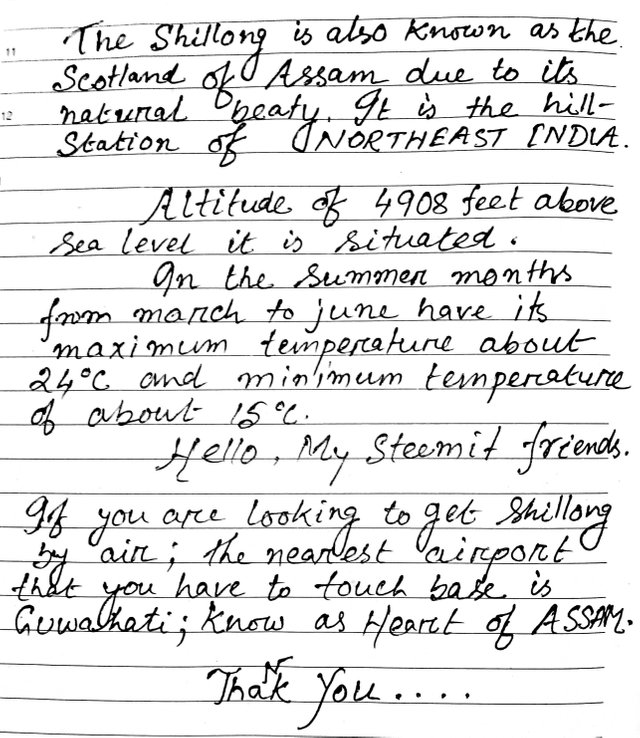 11
The Shillong is also Known as the
Scotland of Assam due to its
12
natural beaty. It is the hill-
Station of NORTHEAST INDIA.
Altitude of 4908 feet above
sea level it is situated.
In the summer months
from march to june have its
maximum temperature about
24°C and minimum temperature
of about 15°C.
Hello, My Steemit friends.
If you are looking to get Shillong
by air; the nearest airport
that you have to touch base is
Guwahati; Know as Heart of ASSAM.
ThaNk You....